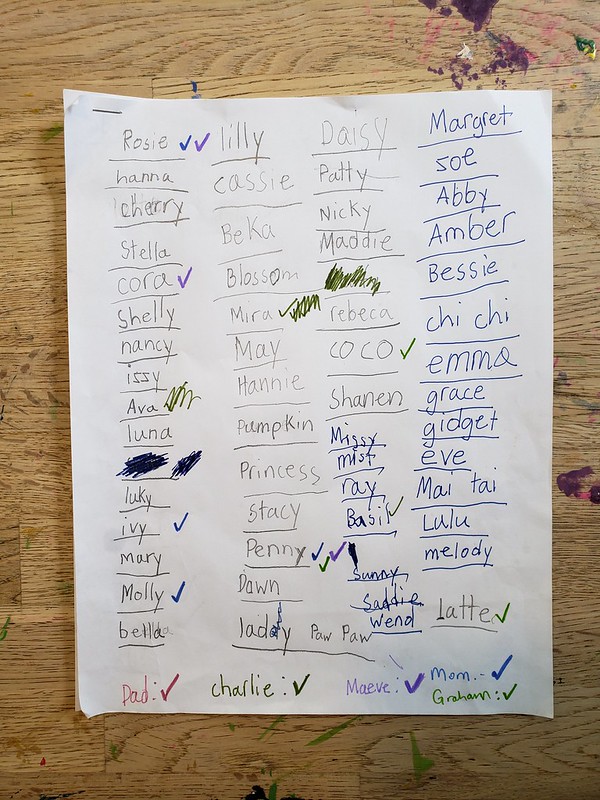 Rosie ✓✓
hanna
cherry
Stella
cora ✓
Shelly
nancy
izzy
Ava
luna
luky
ivy ✓
mary
Molly ✓
bella
lilly
cassie
Beka
Blossom
Mira ✓
May
Hannie
Pumpkin
Princess
stacy
Penny ✓✓✓
Dawn
laddy Paw Paw
Daisy
Patty
Nicky
Maddie
rebeca
coco ✓
Shanen
Missy
mist
ray
Basil ✓
Sunny
Saddie
Wend
Margret
soe
Abby
Amber
Bessie
chi chi
emma
grace
gidget
eve
Mai tai
LuLu
melody
Latte ✓
Dad: ✓
charlie: ✓
Maeve: ✓
Mom - ✓
Graham: ✓